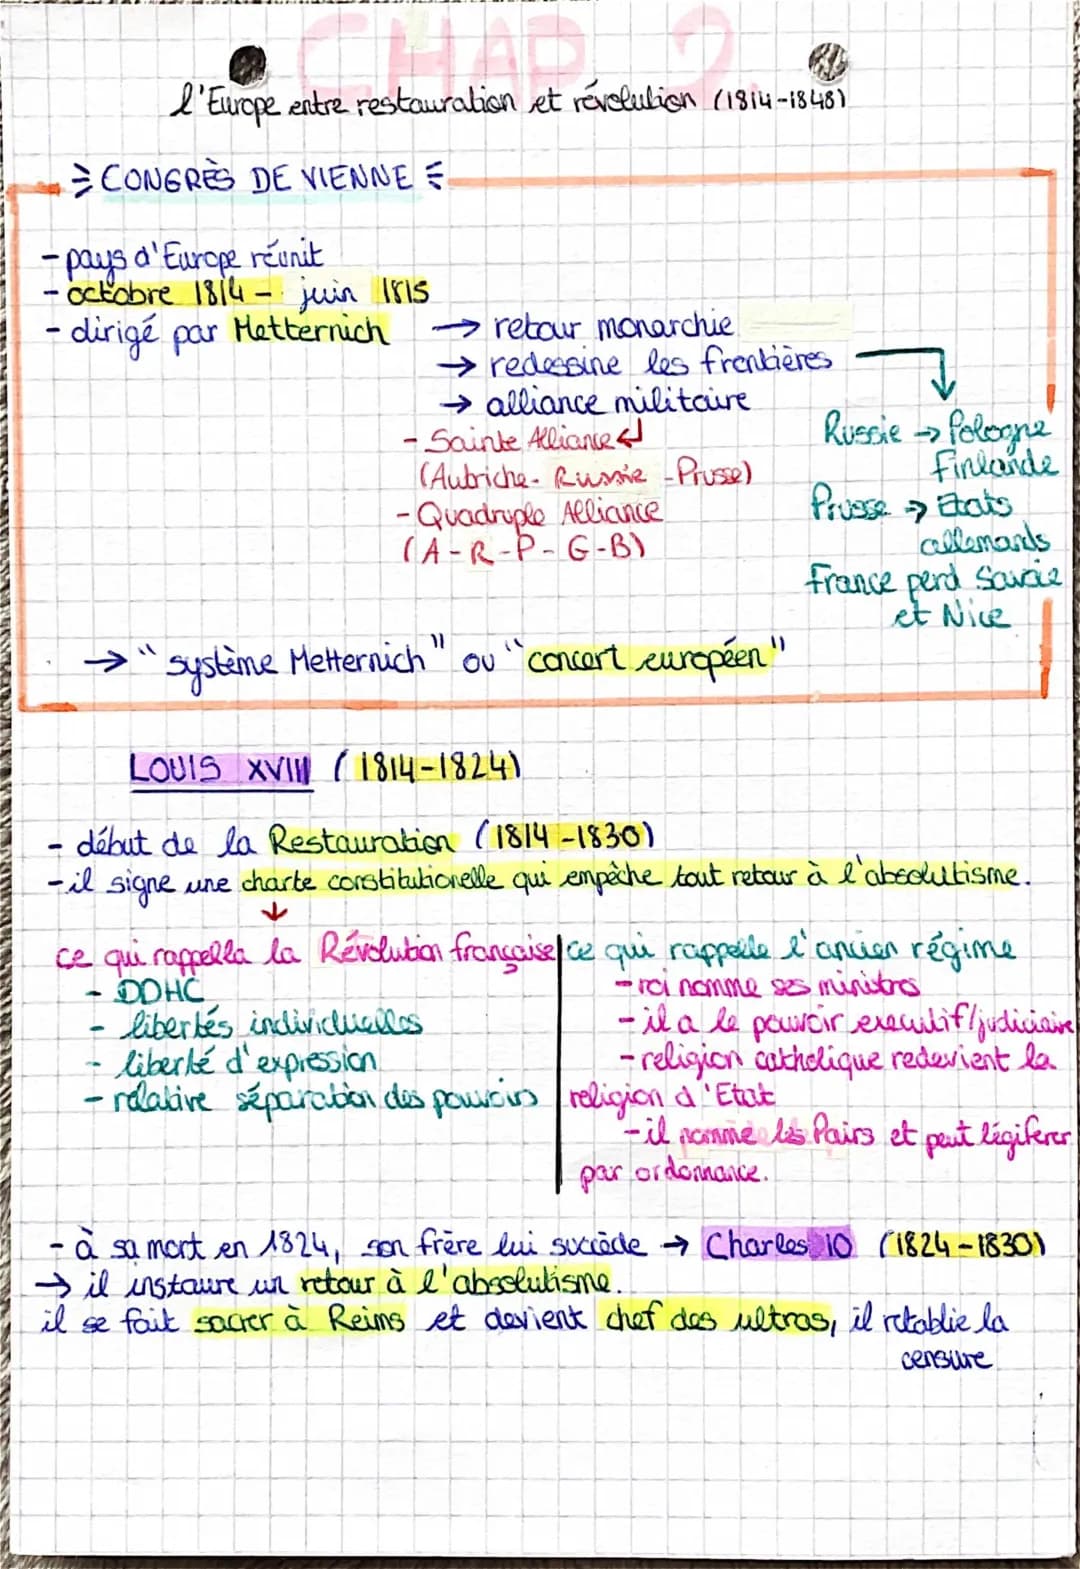 CHAP 2.
l'Europe entre restauration et révolution (1814-1848)
CONGRÈS DE VIENNE
- pays d'Europe réunit
- octobre 1814 - juin 1815
- dirigé par Metternich → retour monarchie
→ redessine les frontières
→ alliance militaire
- Sainte Alliance
(Autriche - Russie - Prusse)
- Quadruple Alliance
(A - R - P - G-B)
Russie → Pologne
Finlande
Prusse → Etats
allemands
France perd Savoie
et Nice
→ "système Metternich" ou "concert européen"
LOUIS XVIII (1814-1824)
- début de la Restauration (1814-1830)
- il signe une charte constitutionelle qui empêche tout retour à l'absolutisme.
↓
ce qui rappella la Révolution française
- DDHC
- libertés individuelles
- liberté d'expression
- relative séparation des pouvoirs
ce qui rappelle l'ancien régime
- roi nomme ses ministres
- il a le pouvoir executif/judiciaire
- religion catholique redevient la
religion d'Etat
- il nomme les Pairs et peut légiferer
par ordonnance.
- à sa mort en 1824, son frère lui succède → Charles 10 (1824-1830)
→ il instaure un retour à l'absolutisme.
il se fait sacrer à Reims et devient chef des ultras, il rétablie la
censure